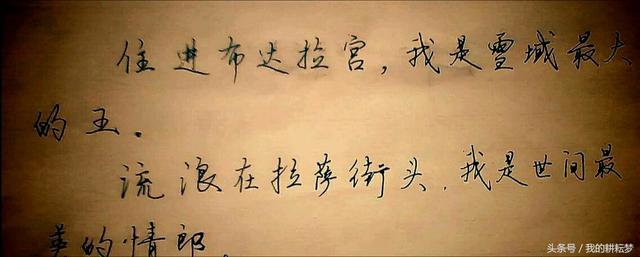 住进布达拉宫，我是雪域最大
的王。
流浪在拉萨街头，我是世间最
美的情郎。
头条号 / 我的耕耘梦